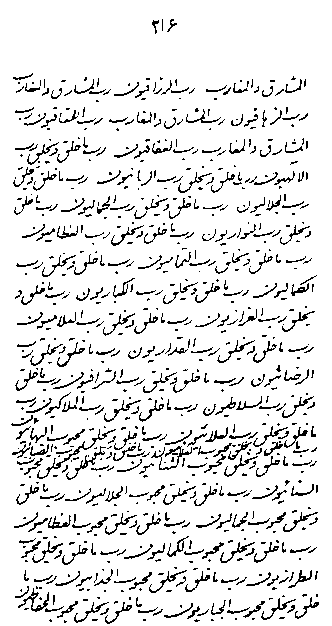 ٢١۶
المشارق والمغارب رب الرزاقيون رب المشارق والمغارب
رب المشارق والمغارب رب
المشارق والمغارب رب رب ما خلق ويخلق رب
الالهيون رب ما خلق ويخلق رب الربانيون رب ما خلق ويخلق
رب الجلاليون رب ما خلق ويخلق رب الجماليون رب ما خلق
ويخلق رب النواريون رب ما خلق ويخلق رب العظاميون
رب ما خلق ويخلق رب التماميون رب ما خلق ويخلق رب
الكماليون رب ما خلق ويخلق رب الكباريون رب ما خلق و
يخلق رب العزازيون رب ما خلق ويخلق رب العلاميون
رب ما خلق ويخلق رب القداريون رب ما خلق ويخلق رب
الرضائيون رب ما خلق ويخلق رب الشرافيون رب ما خلق
ويخلق رب السلاطيون رب ما خلق ويخلق رب الملاكيون رب
ما خلق ويخلق رب العلائيون رب ما خلق ويخلق محبوب البهائيون
رب ما خلق ويخلق محبوب
رب ما خلق ويخلق محبوب
رب ما خلق ويخلق محبوب الجلاليون رب ما خلق
ويخلق محبوب الجماليون رب ما خلق ويخلق محبوب العظاميون
رب ما خلق ويخلق محبوب الكماليون رب ما خلق ويخلق محبوب
الطرازيون رب ما خلق ويخلق محبوب الجذابيون رب ما
خلق ويخلق محبوب الجباريون رب ما خلق ويخلق محبوب